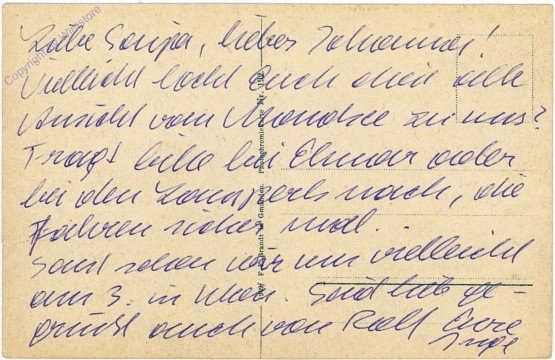 Liebe Sonja, lieber Johannes!
Vielleicht lockt Euch diese alte
Ansicht vom Mondsee zu uns?
Fragt bitte bei Elmar oder
bei den nach, die
fahren sicher mal.
Sonst sehen wir uns vielleicht
am 3. in Wien. Seid lieb ge-
grüsst auch von Ralf Eure
Inge
Gmunden. Photochromiekarte Nr.